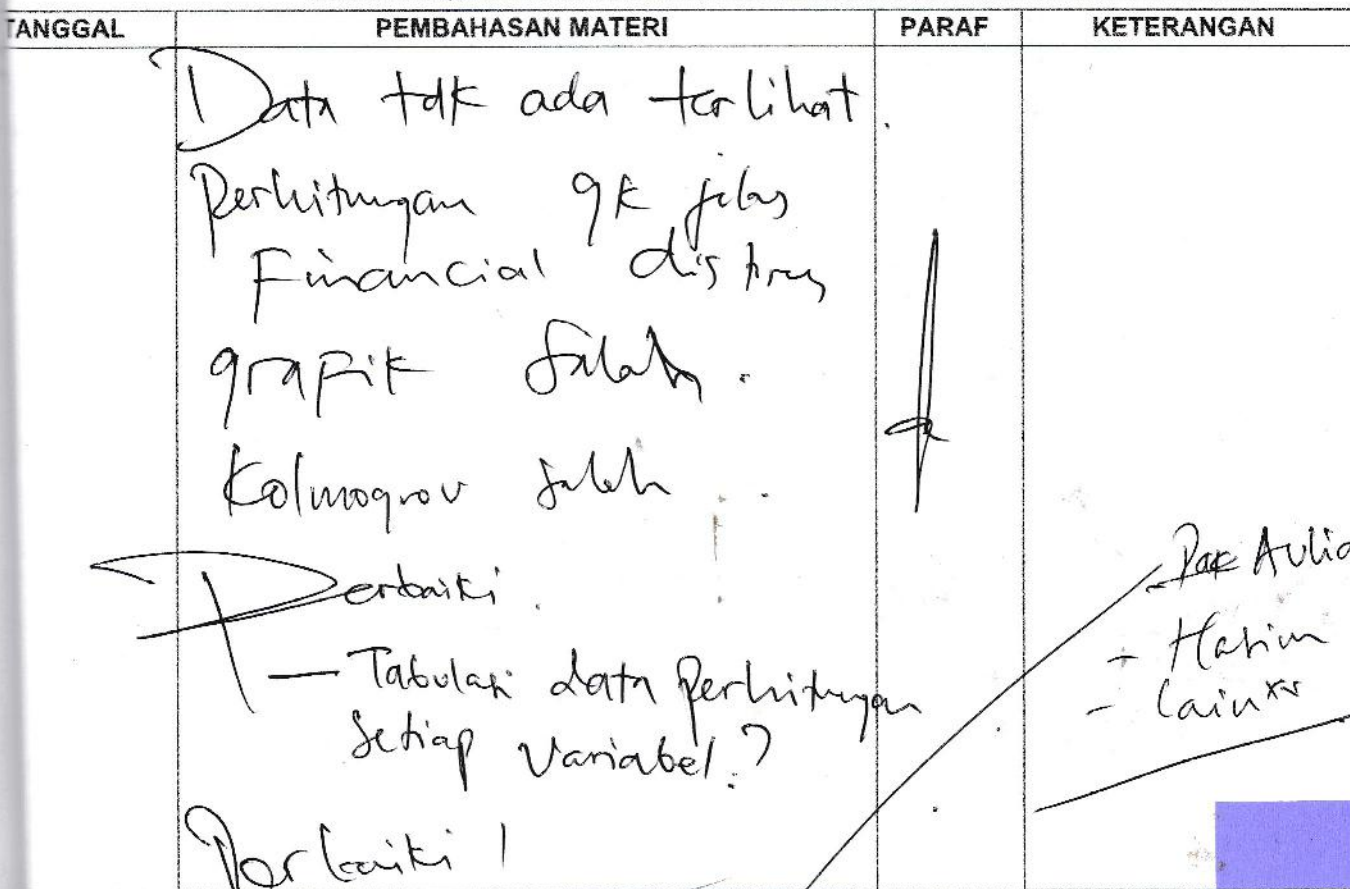 TANGGAL PEMBAHASAN MATERI PARAF KETERANGAN
Data tdk ada terlihat.
Perhitungan gk jelas
Financial distres
grafik salah.
Kolmogrov salah
Perbaiki.
- Tabulasi data Perhitungan
Setiap Variabel.?
Perbaiki!
- Pak Aulia
- Hasim
- lain